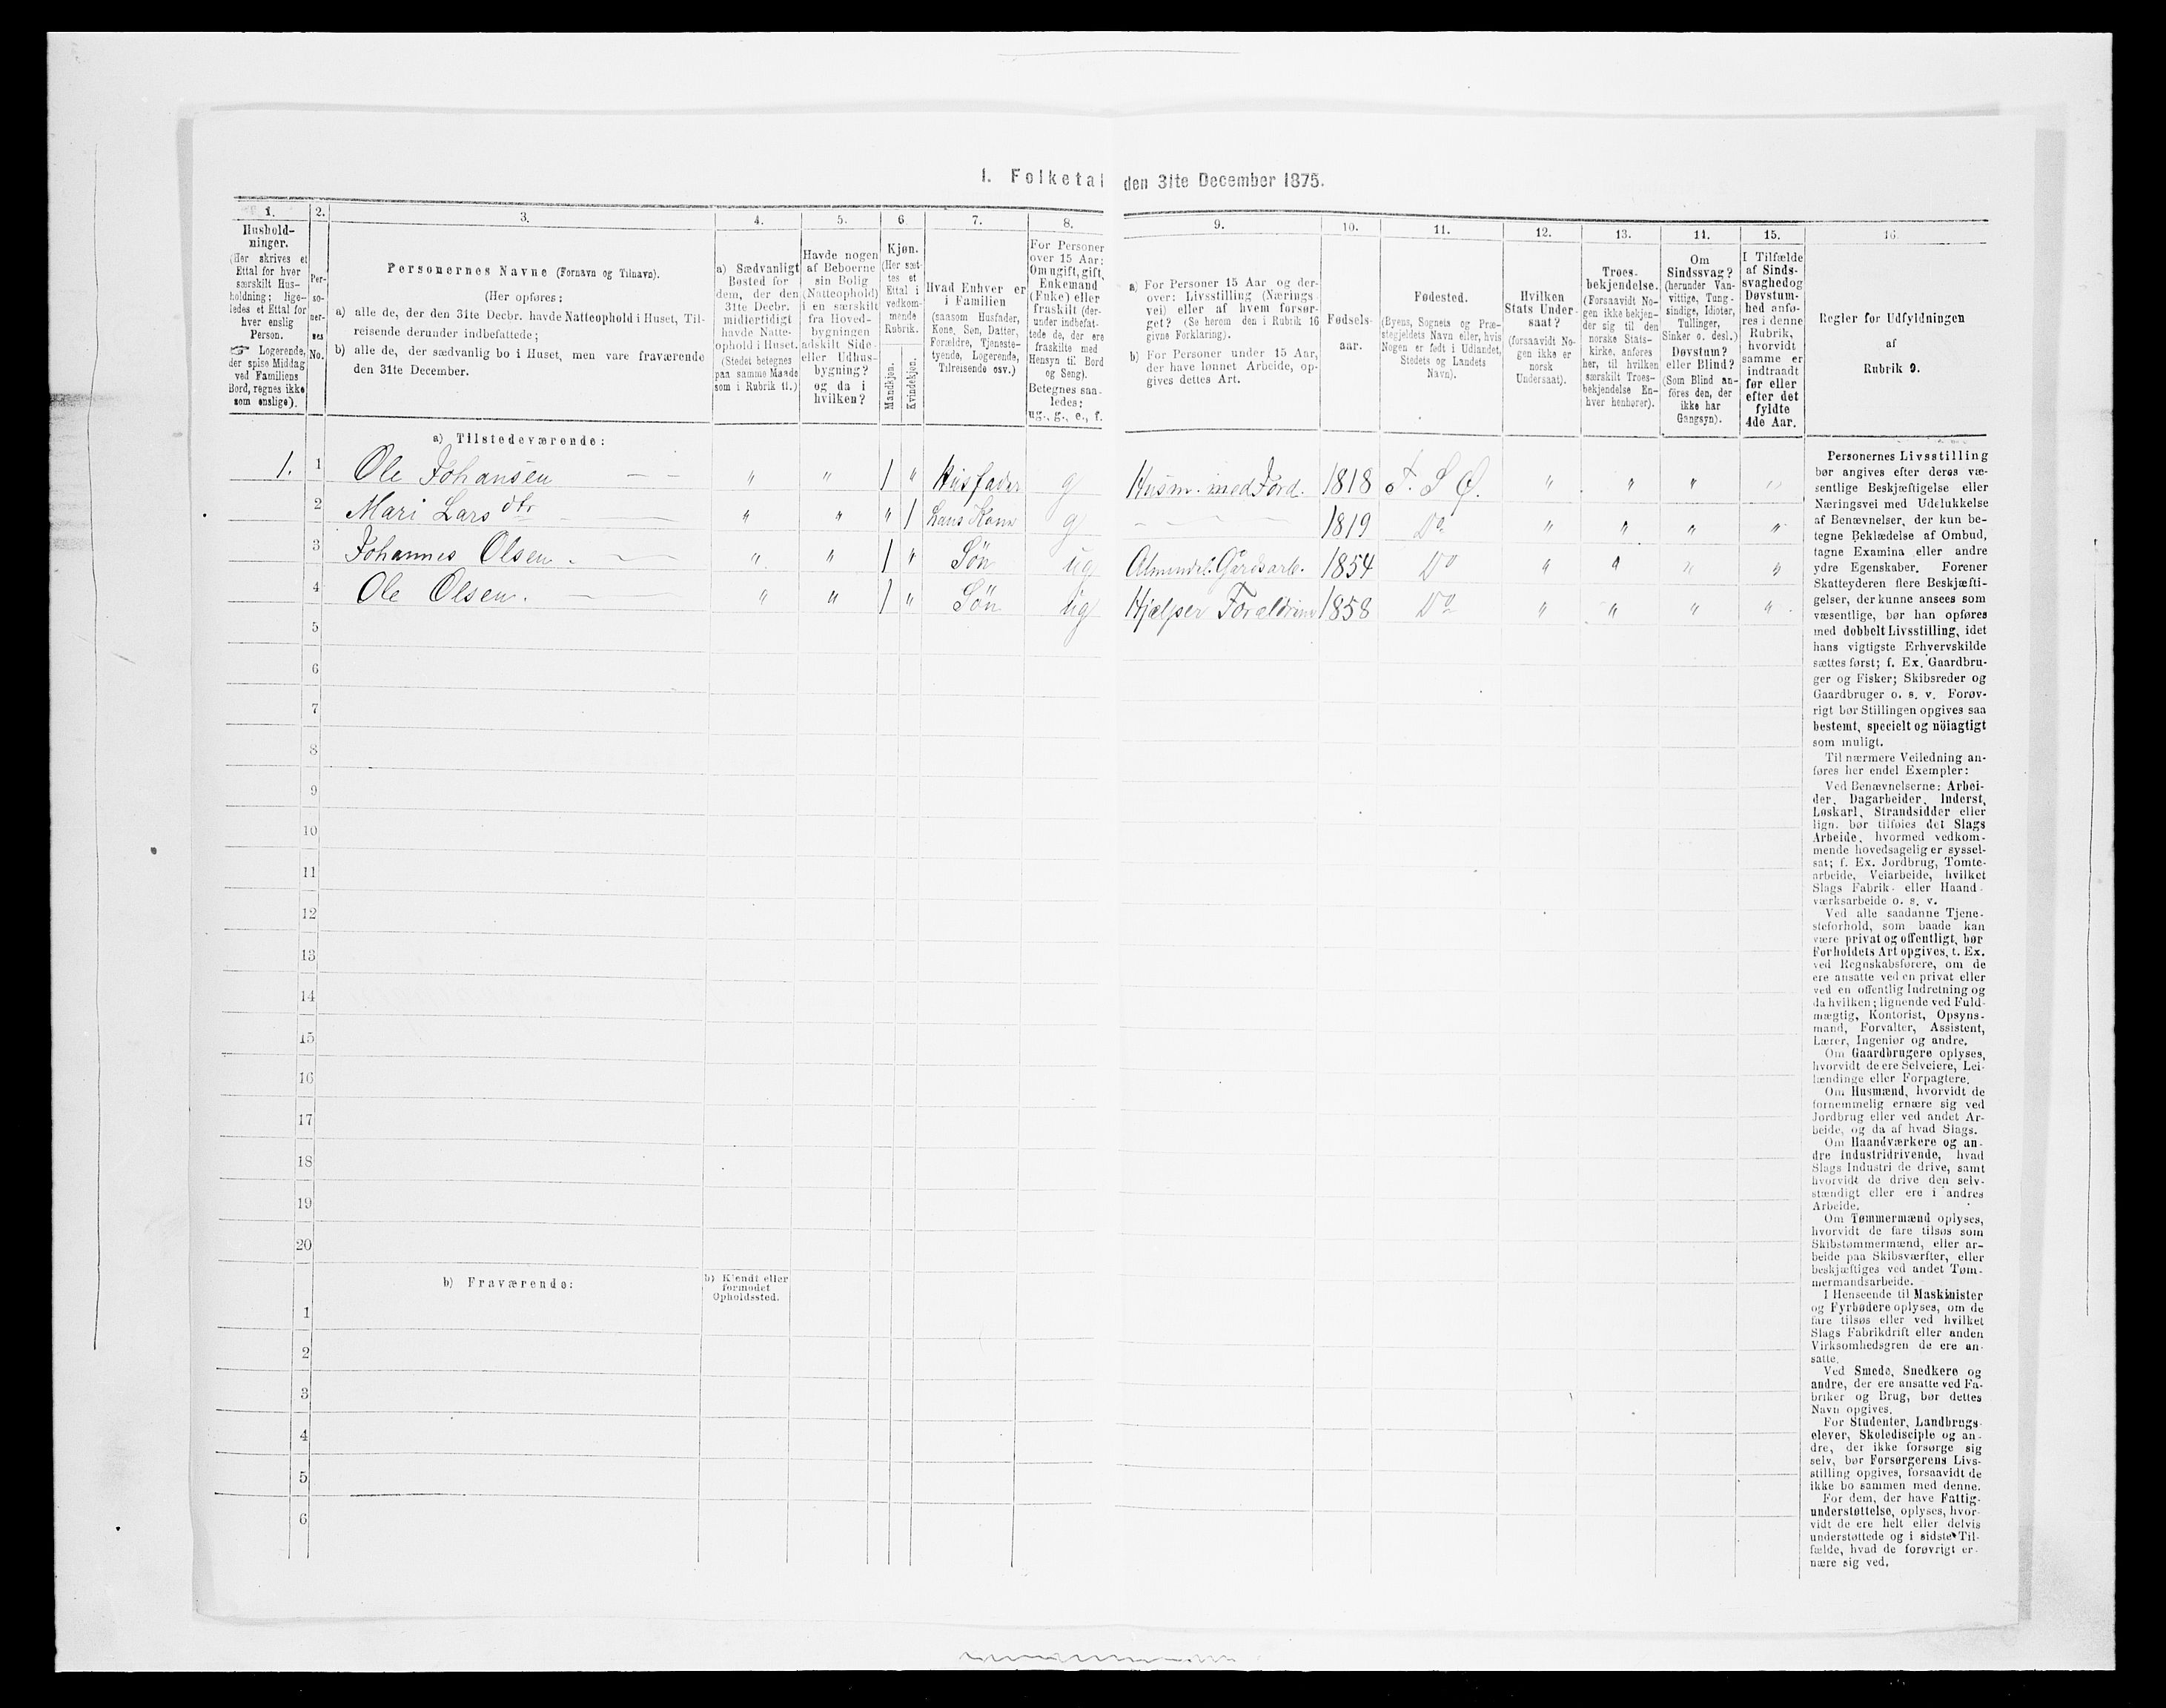 I. Folketal den 31te December 1875.
1. 2. 3. 4. 5. 6 7. 8. 9. 10. 11. 12. 13. 14. 15. 16.
Hushold-
ninger.
(Her skrives et
Ettal for hver
særskilt Hus-
holdning; lige-
ledes et Ettal for
hver enslig
Person.
☞ Logerende,
der spise Middag
ved Familiens
Bord, regnes ikke
som enslige).
Per-
so-
ner-
nes
No.
Personernes Navne (Fornavn og Tilnavn).
(Her opføres:
a) alle de, der den 31te Decbr. havde Natteophold i Huset, Til-
reisende derunder indbefattede;
b) alle de, der sædvanlig bo i Huset, men vare fraværende
den 31te December.
a) Sædvanligt
Bosted for
dem, der den
31te Decbr.
midlertidigt
havde Natte-
ophold i Huset.
(Stedet betegnes
paa samme Maade
som i Rubrik 11.)
Havde nogen
af Beboerne
sin Bolig
(Natteophold)
i en særskilt
fra Hoved-
bygningen
adskilt Side-
eller Udhus-
bygning?
og da i
hvilken?
Kjøn.
(Her sæt-
tes et
Ettal i
vedkom-
mende
Rubrik.
Mandkjøn.
Kvindekjøn.
Hvad Enhver er
i Familien
(saasom Husfader,
Kone, Søn, Datter,
Forældre, Tjeneste-
tyende, Logerende,
Tilreisende osv.)
For Personer
over 15 Aar:
Om ugift, gift,
Enkemand
(Enke) eller
fraskilt (der-
under indbefat-
tede de, der ere
fraskilte med
Hensyn til Bord
og Seng).
Betegnes saa-
ledes:
ug., g., e., f.
a) For Personer 15 Aar og der-
over: Livsstilling (Nærings-
vei) eller af hvem forsør-
get? (Se herom den i Rubrik 16
givne Forklaring).
b) For Personer under 15 Aar,
der have lønnet Arbeide, op-
gives dettes Art.
Fødsels-
aar.
Fødested.
(Byens, Sognets og Præ-
stegjeldets Navn eller, hvis
Nogen er født i Udlandet,
Stedets og Landets
Navn).
Hvilken
Stats Under-
saat?
(forsaavidt No-
gen ikke er
norsk
Undersaat).
Troes-
bekjendelse.
(Forsaavidt No-
gen ikke bekjen-
der sig til den
norske Stats-
kirke, anføres
her, til hvilken
særskilt Troes-
bekjendelse En-
hver henhører).
Om
Sindssvag?
(herunder Van-
vittige, Tung-
sindige, Idioter,
Tullinger,
Sinker o. desl.)
Døvstum?
eller Blind?
(Som Blind an-
føres den, der
ikke har
Gangsyn).
I Tilfælde
af Sinds-
svaghedog
Døvstum-
hed anfø-
res i denne
Rubrik,
hvorvidt
samme er
indtraadt
før eller
efter det
fyldte
4de Aar.
Regler for Udfyldningen
af
Rubrik 9.
a) Tilstedeværende:
1. 1 Ole Johansen — — " " 1 " Husfader g Husm. med Jord. 1818 T. S Ø. " " " "
2 Mari Larsdtr — — " " " 1 hans Kone g — — — 1819 Do " " " "
3 Johannes Olsen. — — " " 1 " Sön ug Almindel. Gårdsarb. 1854 Do " " " "
4 Ole Olsen. — — " " 1 " Sön ug Hjælper Forældrene 1858 Do " " " "
5
6
7
8
9
10
11
12
13
14
15
16
17
18
19
20
b) Fraværende:
b) Kjendt eller
formodet
Opholdssted.
1
2
3
4
5
6
Personernes Livsstilling
bør angives efter deres væ-
sentlige Beskjæftigelse eller
Næringsvei med Udelukkelse
af Benævnelser, der kun be-
tegne Beklædelse af Ombud,
tagne Examina eller andre
ydre Egenskaber. Forener
Skatteyderen flere Beskjæfti-
gelser, der kunne ansees som
væsentlige, bør han opføres
med dobbelt Livsstilling, idet
hans vigtigste Erhvervskilde
sættes først; f. Ex. Gaardbru-
ger og Fisker; Skibsreder og
Gaardbruger o. s. v. Forøv-
rigt bør Stillingen opgives saa
bestemt, specielt og nöiagtigt
som muligt.
Til nærmere Veiledning an-
føres her endel Exempler:
Ved Benævnelserne: Arbei-
der, Dagarbeider, Inderst,
Løskarl, Strandsidder eller
lign. bør tilføies det Slags
Arbeide, hvormed vedkom-
mende hovedsagelig er syssel-
sat; f. Ex. Jordbrug, Tomte-
arbeide, Veiarbeide, hvilket
Slags Fabrik- eller Haand-
værksarbeide o. s. v.
Ved alle saadanne Tjene-
steforhold, som baade kan
være privat og offentligt, bør
Forholdets Art opgives, t. Ex.
ved Regnskabsførere, om de
ere ansatte ved en privat eller
ved en offentlig Indretning og
da hvilken; lignende ved Fuld-
mægtig, Kontorist, Opsyns-
mand, Forvalter, Assistent,
Lærer, Ingeniør og andre.
Om Gaardbrugere oplyses,
hvorvidt de ere Selveiere, Lei-
lændinge eller Forpagtere.
Om Husmænd, hvorvidt de
fornemmelig ernære sig ved
Jordbrug eller ved andet Ar-
beide, og da af hvad Slags.
Om Haandværkere og an-
dre industridrivende, hvad
Slags Industri de drive, samt
hvorvidt de drive den selv-
stændigt eller ere i andres
Arbeide.
Om Tømmermænd oplyses,
hvorvidt de fare tilsøs som
Skibstømmermænd, eller ar-
beide paa Skibsværfter, eller
beskjæftiges ved andet Tøm-
mermandsarbeide.
I Henseende til Maskinister
og Fyrbødere oplyses, om de
fare tilsøs eller ved hvilket
Slags Fabrikdrift eller anden
Virksomhedsgren de ere an-
satte.
Ved Smede, Snedkere og
andre, der ere ansatte ved Fa-
briker og Brug, bør dettes
Navn opgives.
For Studenter, Landbrugs-
elever, Skoledisciple og an-
dre, der ikke forsørge sig
selv, bør Forsørgerens Livs-
stilling opgives, forsaavidt de
ikke bo sammen med denne.
For dem, der have Fattig-
understøttelse, oplyses, hvor-
vidt de ere helt eller delvis
understøttede og i sidste Til-
fælde, hvad de forøvrigt er-
nære sig ved.